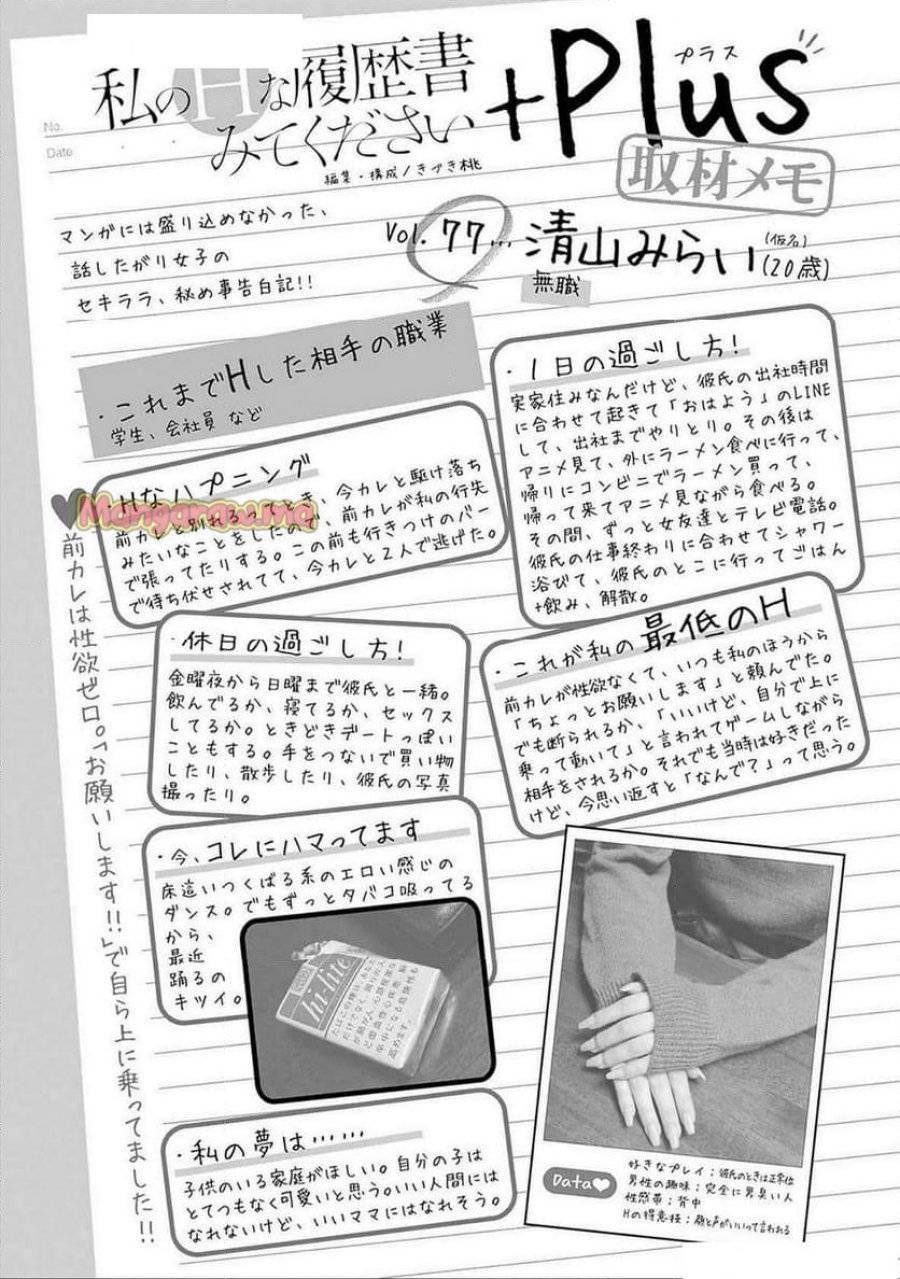 私のHな履歴書
みてください
+Plus
プラス
編集・構成/きづき桃
取材メモ
No.
Date
マンガには盛り込めなかった、
話したがり女子の
セキララ、秘め事告白記!!
Vol.77… 清山みらい(仮名)(20歳)
無職
・これまでHした相手の職業
学生、会社員 など
・1日の過ごし方!
実家住みなんだけど、彼氏の出社時間
に合わせて起きて「おはよう」のLINE
して、出社までやりとり。その後は
アニメ見て、外にラーメン食べに行って、
帰りにコンビニでラーメン買って、
帰って来てアニメ見ながら食べる。
その間、ずっと女友達とテレビ電話。
彼氏の仕事終わりに合わせてシャワー
浴びて、彼氏のとこに行ってごはん
+飲み、解散。
Hなハプニング
Mangaraw.ma
前カレと別れるとき、今カレと駆け落ち
みたいなことをしたので、前カレが私の行先
で張ってたりする。この前も行きつけのバー
で待ち伏せされてて、今カレと2人で逃げた。
♥前カレは性欲ゼロ。「お願いします!!」で自ら上に乗ってました!!
・休日の過ごし方!
金曜夜から日曜まで彼氏と一緒。
飲んでるか、寝てるか、セックス
してるか。ときどきデートっぽい
こともする。手をつないで買い物
したり、散歩したり、彼氏の写真
撮ったり。
・これが私の最低のH
前カレが性欲なくて、いつも私のほうから
「ちょっとお願いします」と頼んでた。
でも断られるか、「いいけど、自分で上に
乗って動いて」と言われてゲームしながら
相手をされるか。それでも当時は好きだった
けど、今思い返すと「なんで?」って思う。
・今、コレにハマってます
床這いつくばる系のエロい感じの
ダンス。でもずっとタバコ吸ってる
から、
最近
踊るの
キツイ。
hi-lite
・私の夢は……
子供のいる家庭がほしい。自分の子は
とてつもなく可愛いと思う。いい人間には
なれないけど、いいママにはなれそう。
Data♥
好きなプレイ:彼氏のときは正常位
男性の趣味:完全に男臭い人
性感帯:背中
Hの得意技:顔と声がいいって言われる